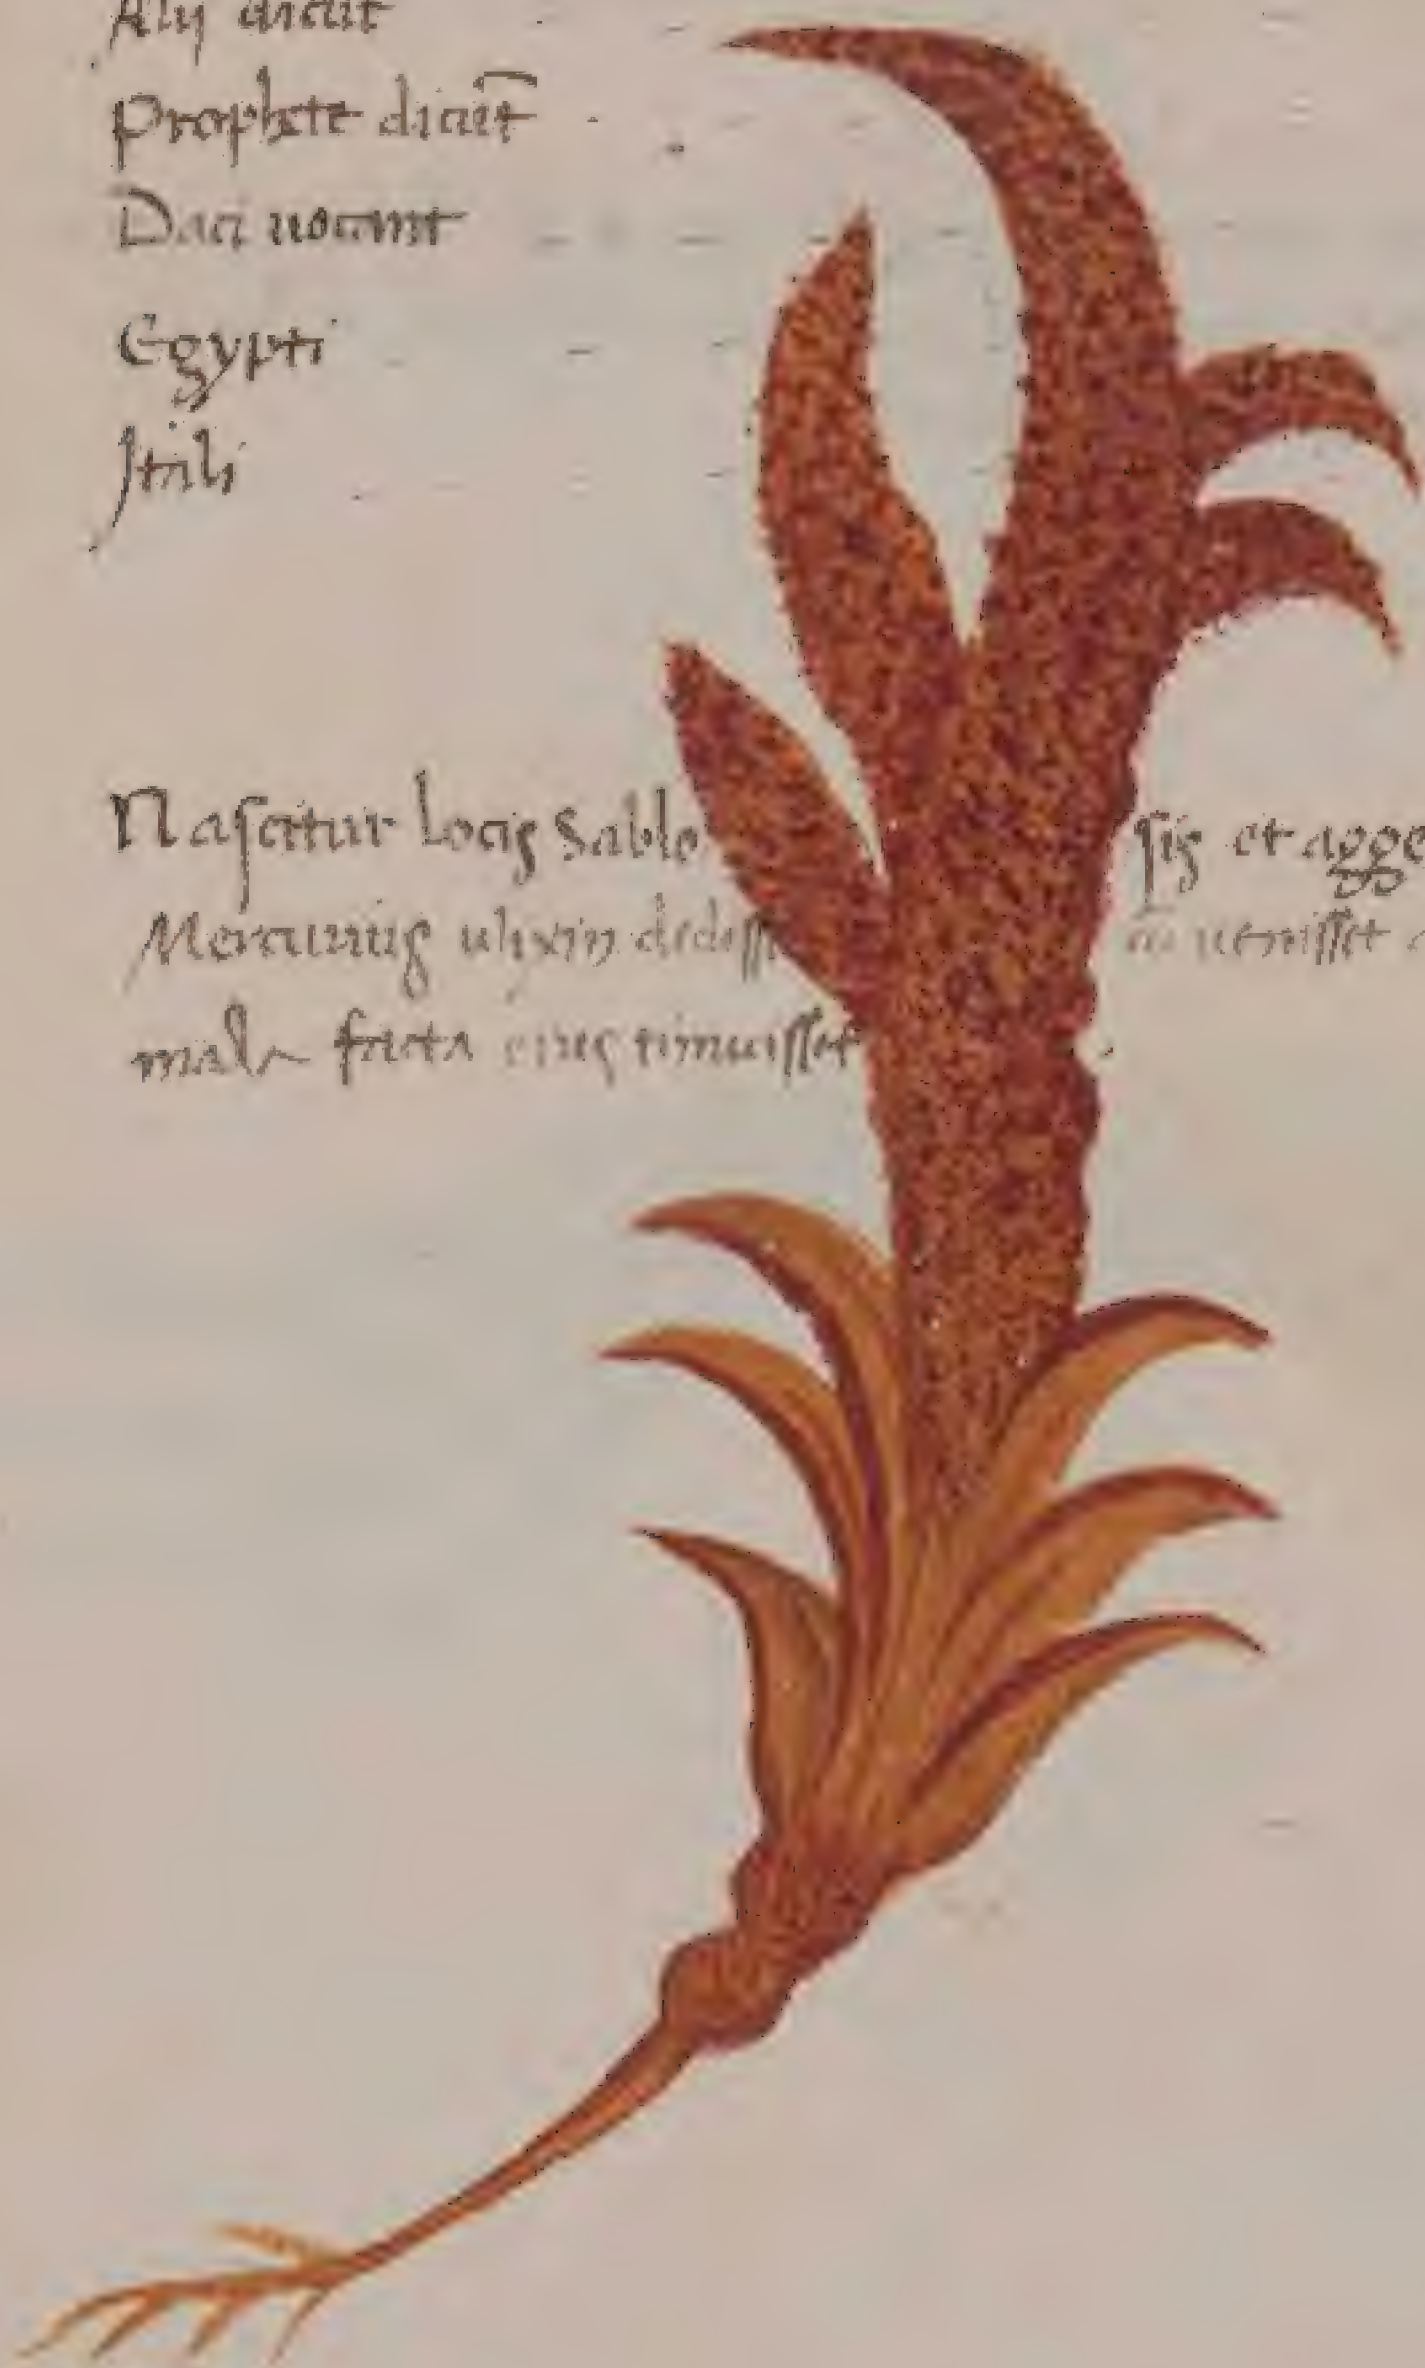 Alij dicūt
Prophete dicūt
Daci uocant
Egypti
Itali
Nascitur locis Sablo sis et agge
Mercurius ulixin dedisse cū uenisset
mala facta eius timuisset